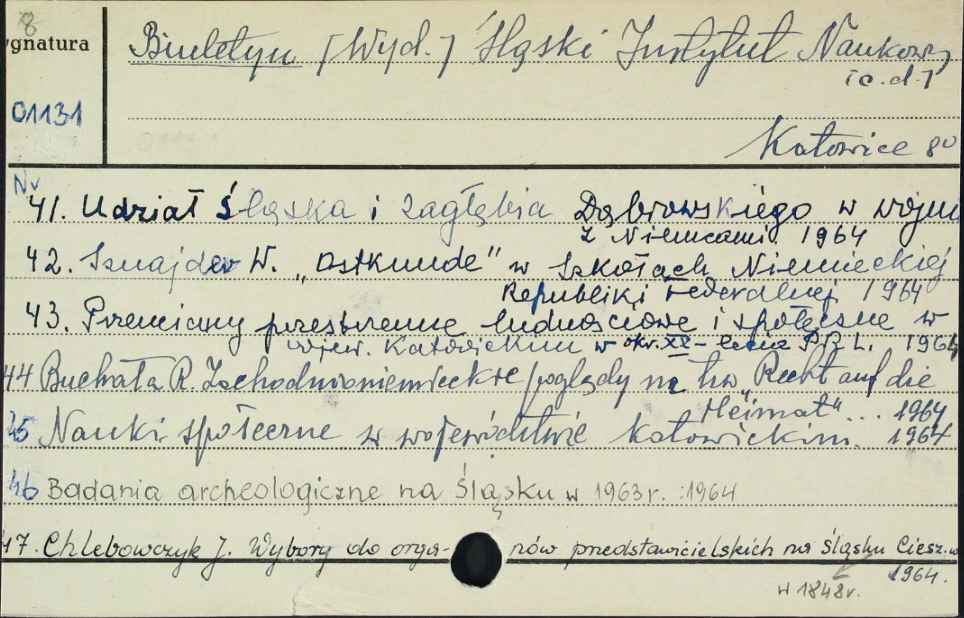 8
ygnatura
Biuletyn [Wyd.] Śląski Instytut Naukowy
[c.d.]
01131
Katowice 8º
Nr
41. Udział Śląska i Zagłębia Dąbrowskiego w wojnie
z Niemcami. 1964
42. Sznajder W. „Ostkunde" w Szkołach Niemieckiej
Republiki Federalnej 1964
43. Przemiany przestrzenne ludnościowe i społeczne w
wojew. Katowickim w okr. XX-lecia PRL. 1964
44 Buchała R. Zachodnioniemieckie poglądy na tzw „Recht auf die
Heimat"... 1964
45 Nauki społeczne w województwie katowickim. 1964
46 Badania archeologiczne na Śląsku w 1963r. : 1964
47. Chlebowczyk J. Wybory do orga- nów przedstawicielskich na Śląsku Ciesz.
w 1848r. 1964.